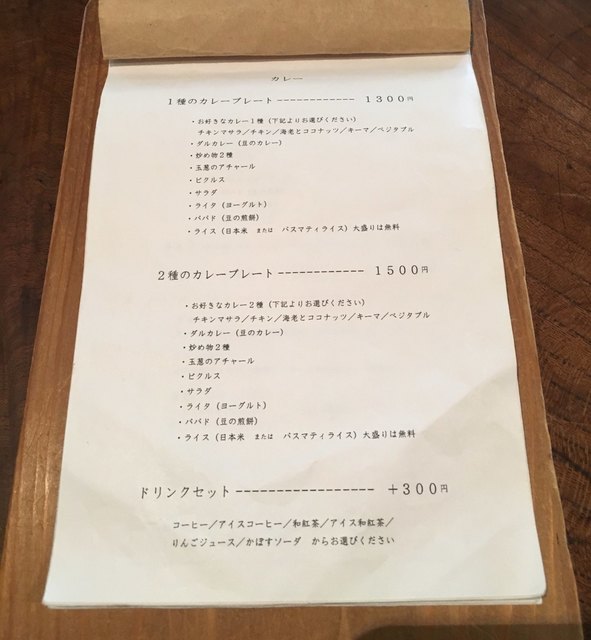 カレー
1種のカレープレート------------ 1300円
・お好きなカレー1種（下記よりお選びください）
チキンマサラ／チキン／海老とココナッツ／キーマ／ベジタブル
・ダルカレー（豆のカレー）
・炒め物2種
・玉葱のアチャール
・ピクルス
・サラダ
・ライタ（ヨーグルト）
・パパド（豆の煎餅）
・ライス（日本米　または　バスマティライス）大盛りは無料
2種のカレープレート------------ 1500円
・お好きなカレー2種（下記よりお選びください）
チキンマサラ／チキン／海老とココナッツ／キーマ／ベジタブル
・ダルカレー（豆のカレー）
・炒め物2種
・玉葱のアチャール
・ピクルス
・サラダ
・ライタ（ヨーグルト）
・パパド（豆の煎餅）
・ライス（日本米　または　バスマティライス）大盛りは無料
ドリンクセット------------------ ＋300円
コーヒー／アイスコーヒー／和紅茶／アイス和紅茶／
りんごジュース／かぼすソーダ　からお選びください